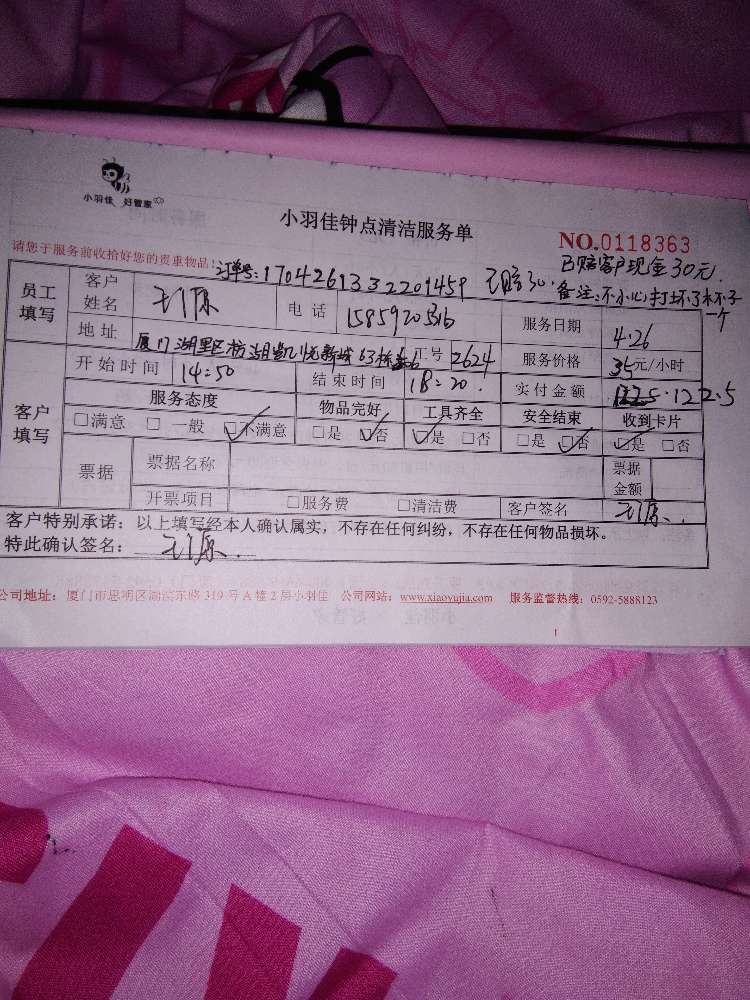 小羽佳 好管家
小羽佳钟点清洁服务单
NO.0118363
请您于服务前收拾好您的贵重物品!
订单号:17042613332201459 已赔30.
已赔客户现金30元.
备注:不小心打坏了杯子一个
员工填写
客户姓名
电话 1585920
服务日期 4.26
地址 厦门湖里区枋湖 新城63栋
工号 2624
服务价格 35元/小时
开始时间 14:50
结束时间 18:20.
实付金额 122.5
客户填写
服务态度 物品完好 工具齐全 安全结束 收到卡片
□满意 □一般 □不满意 □是 □否 □是 □否 □是 □否 □是 □否
票据 票据名称 票据金额
开票项目 □服务费 □清洁费 客户签名
客户特别承诺:以上填写经本人确认属实,不存在任何纠纷,不存在任何物品损坏。
特此确认签名:
公司地址:厦门市思明区湖滨东路319号A幢2层小羽佳 公司网站:www.xiaoyujia.com 服务监督热线:0592-5888123
1